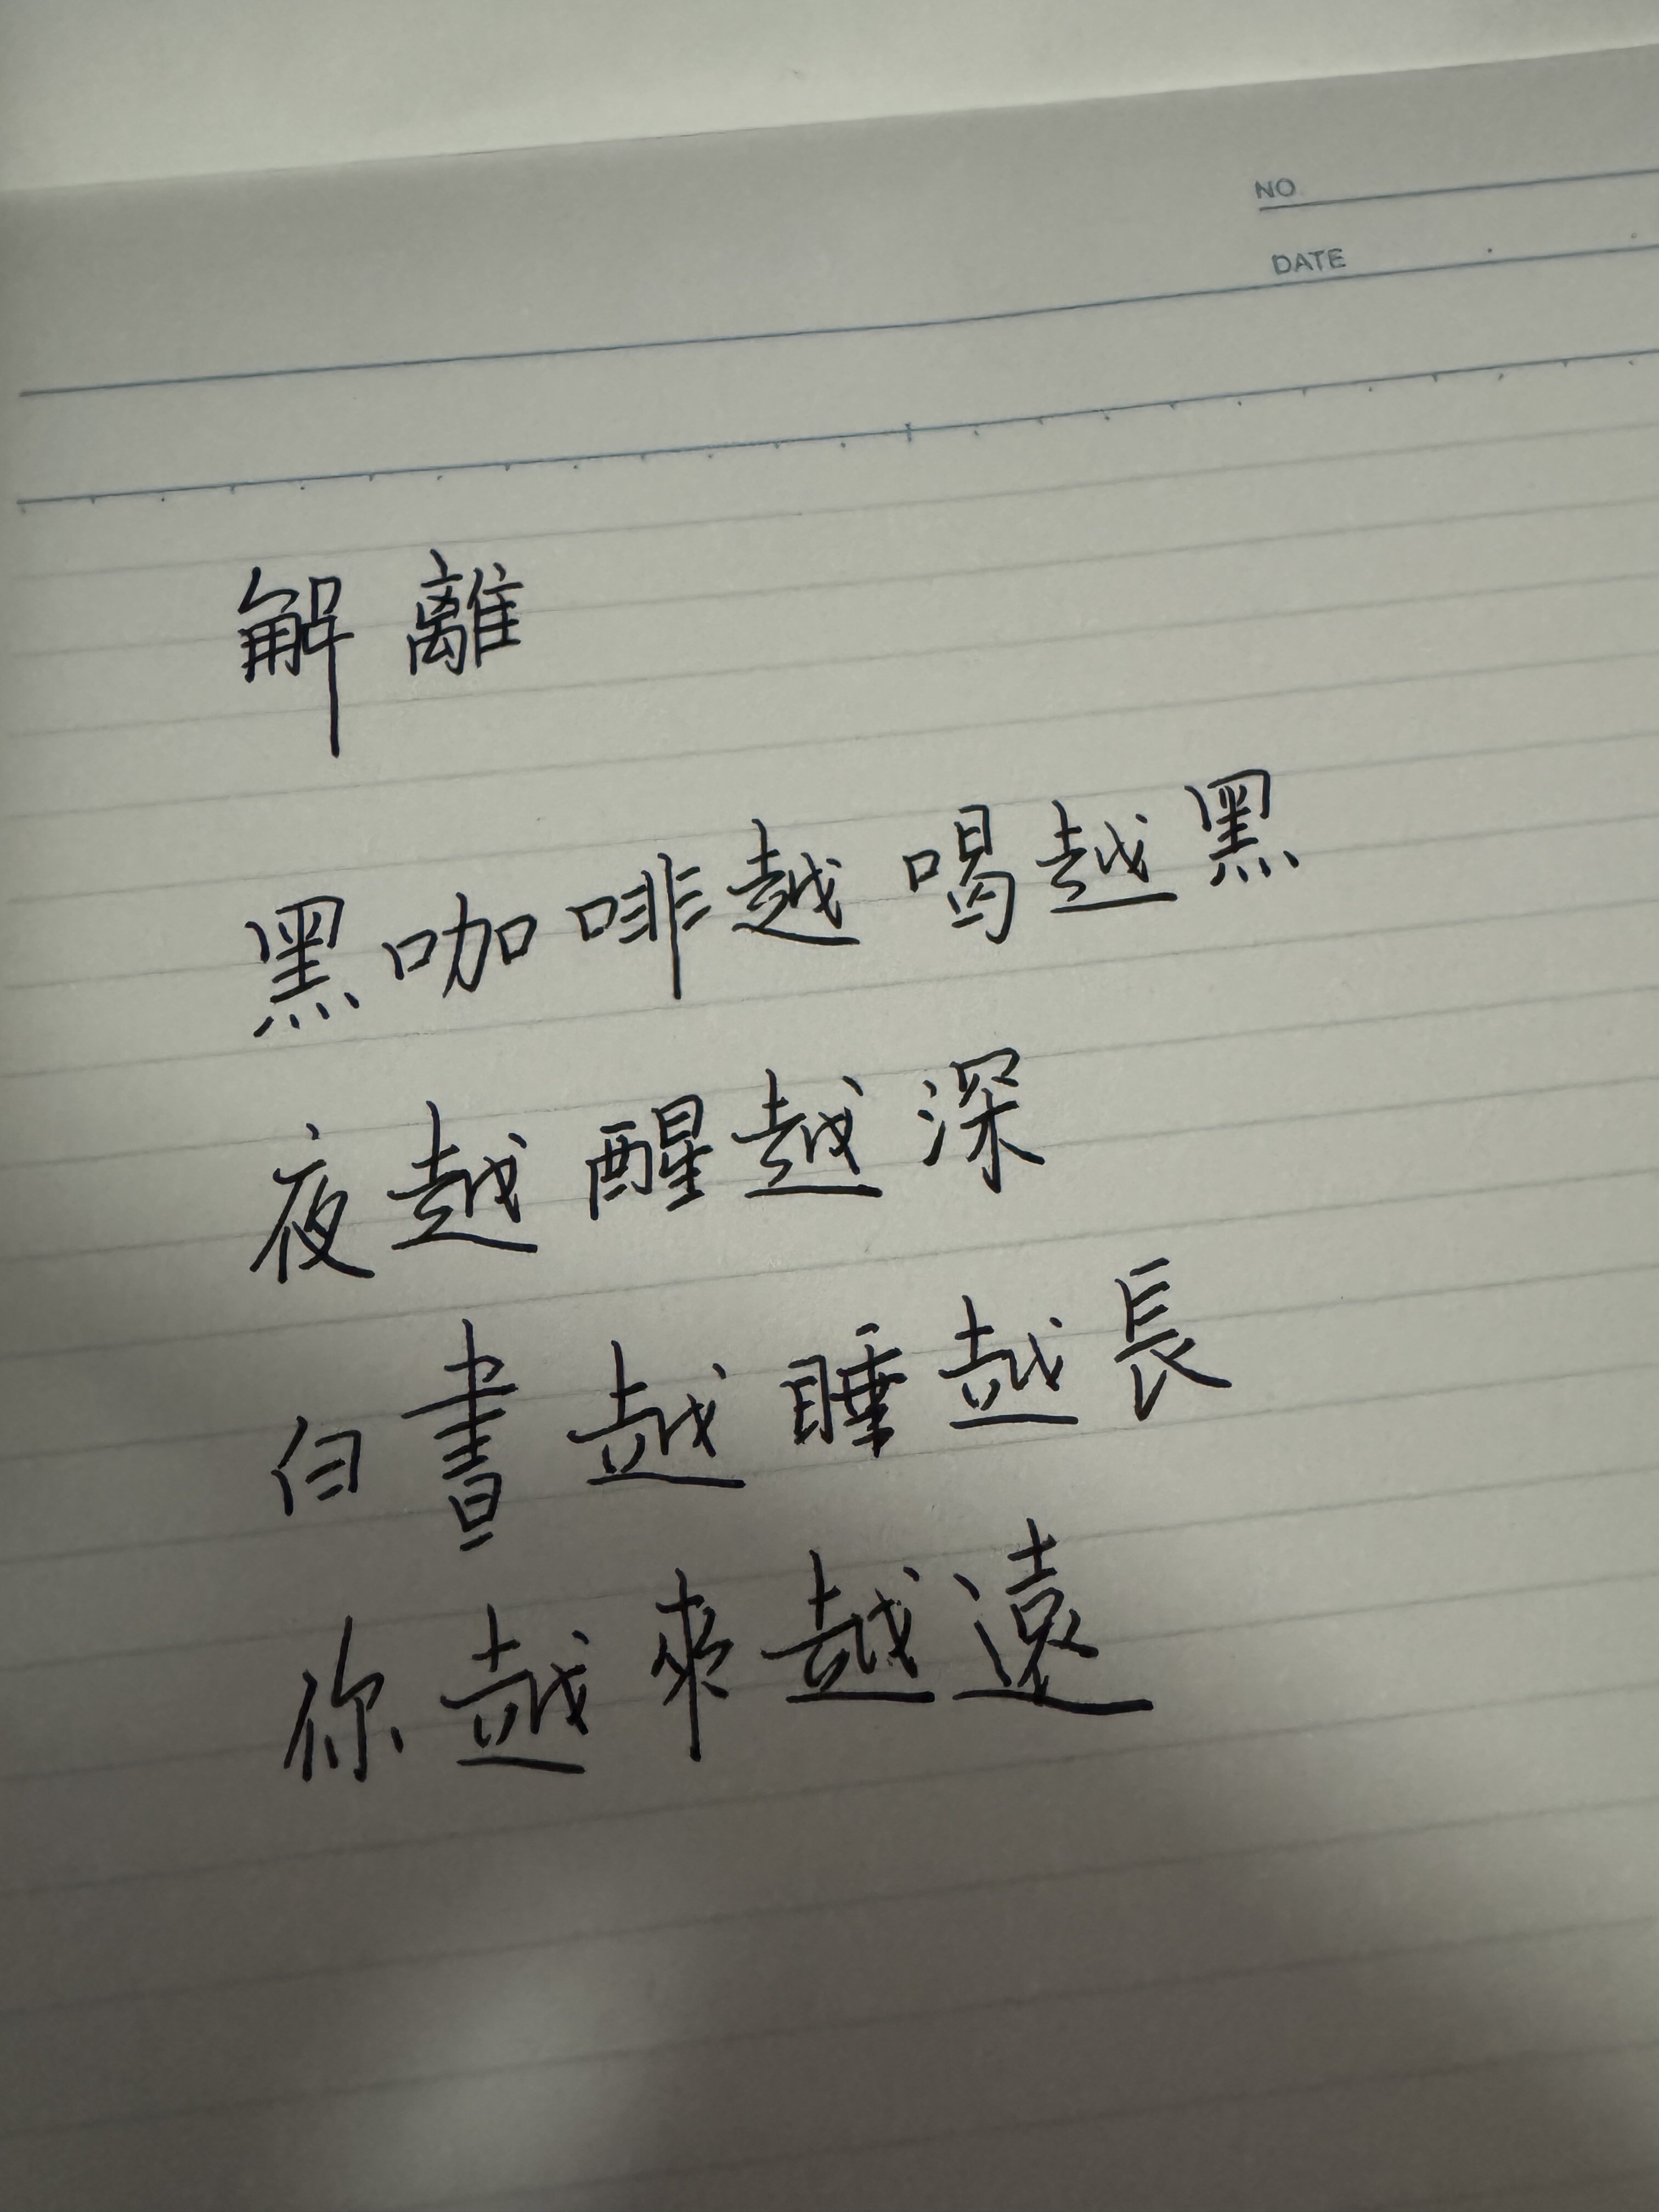 NO
DATE
解離
黑咖啡越喝越黑
夜越醒越深
白晝越睡越長
你越來越遠